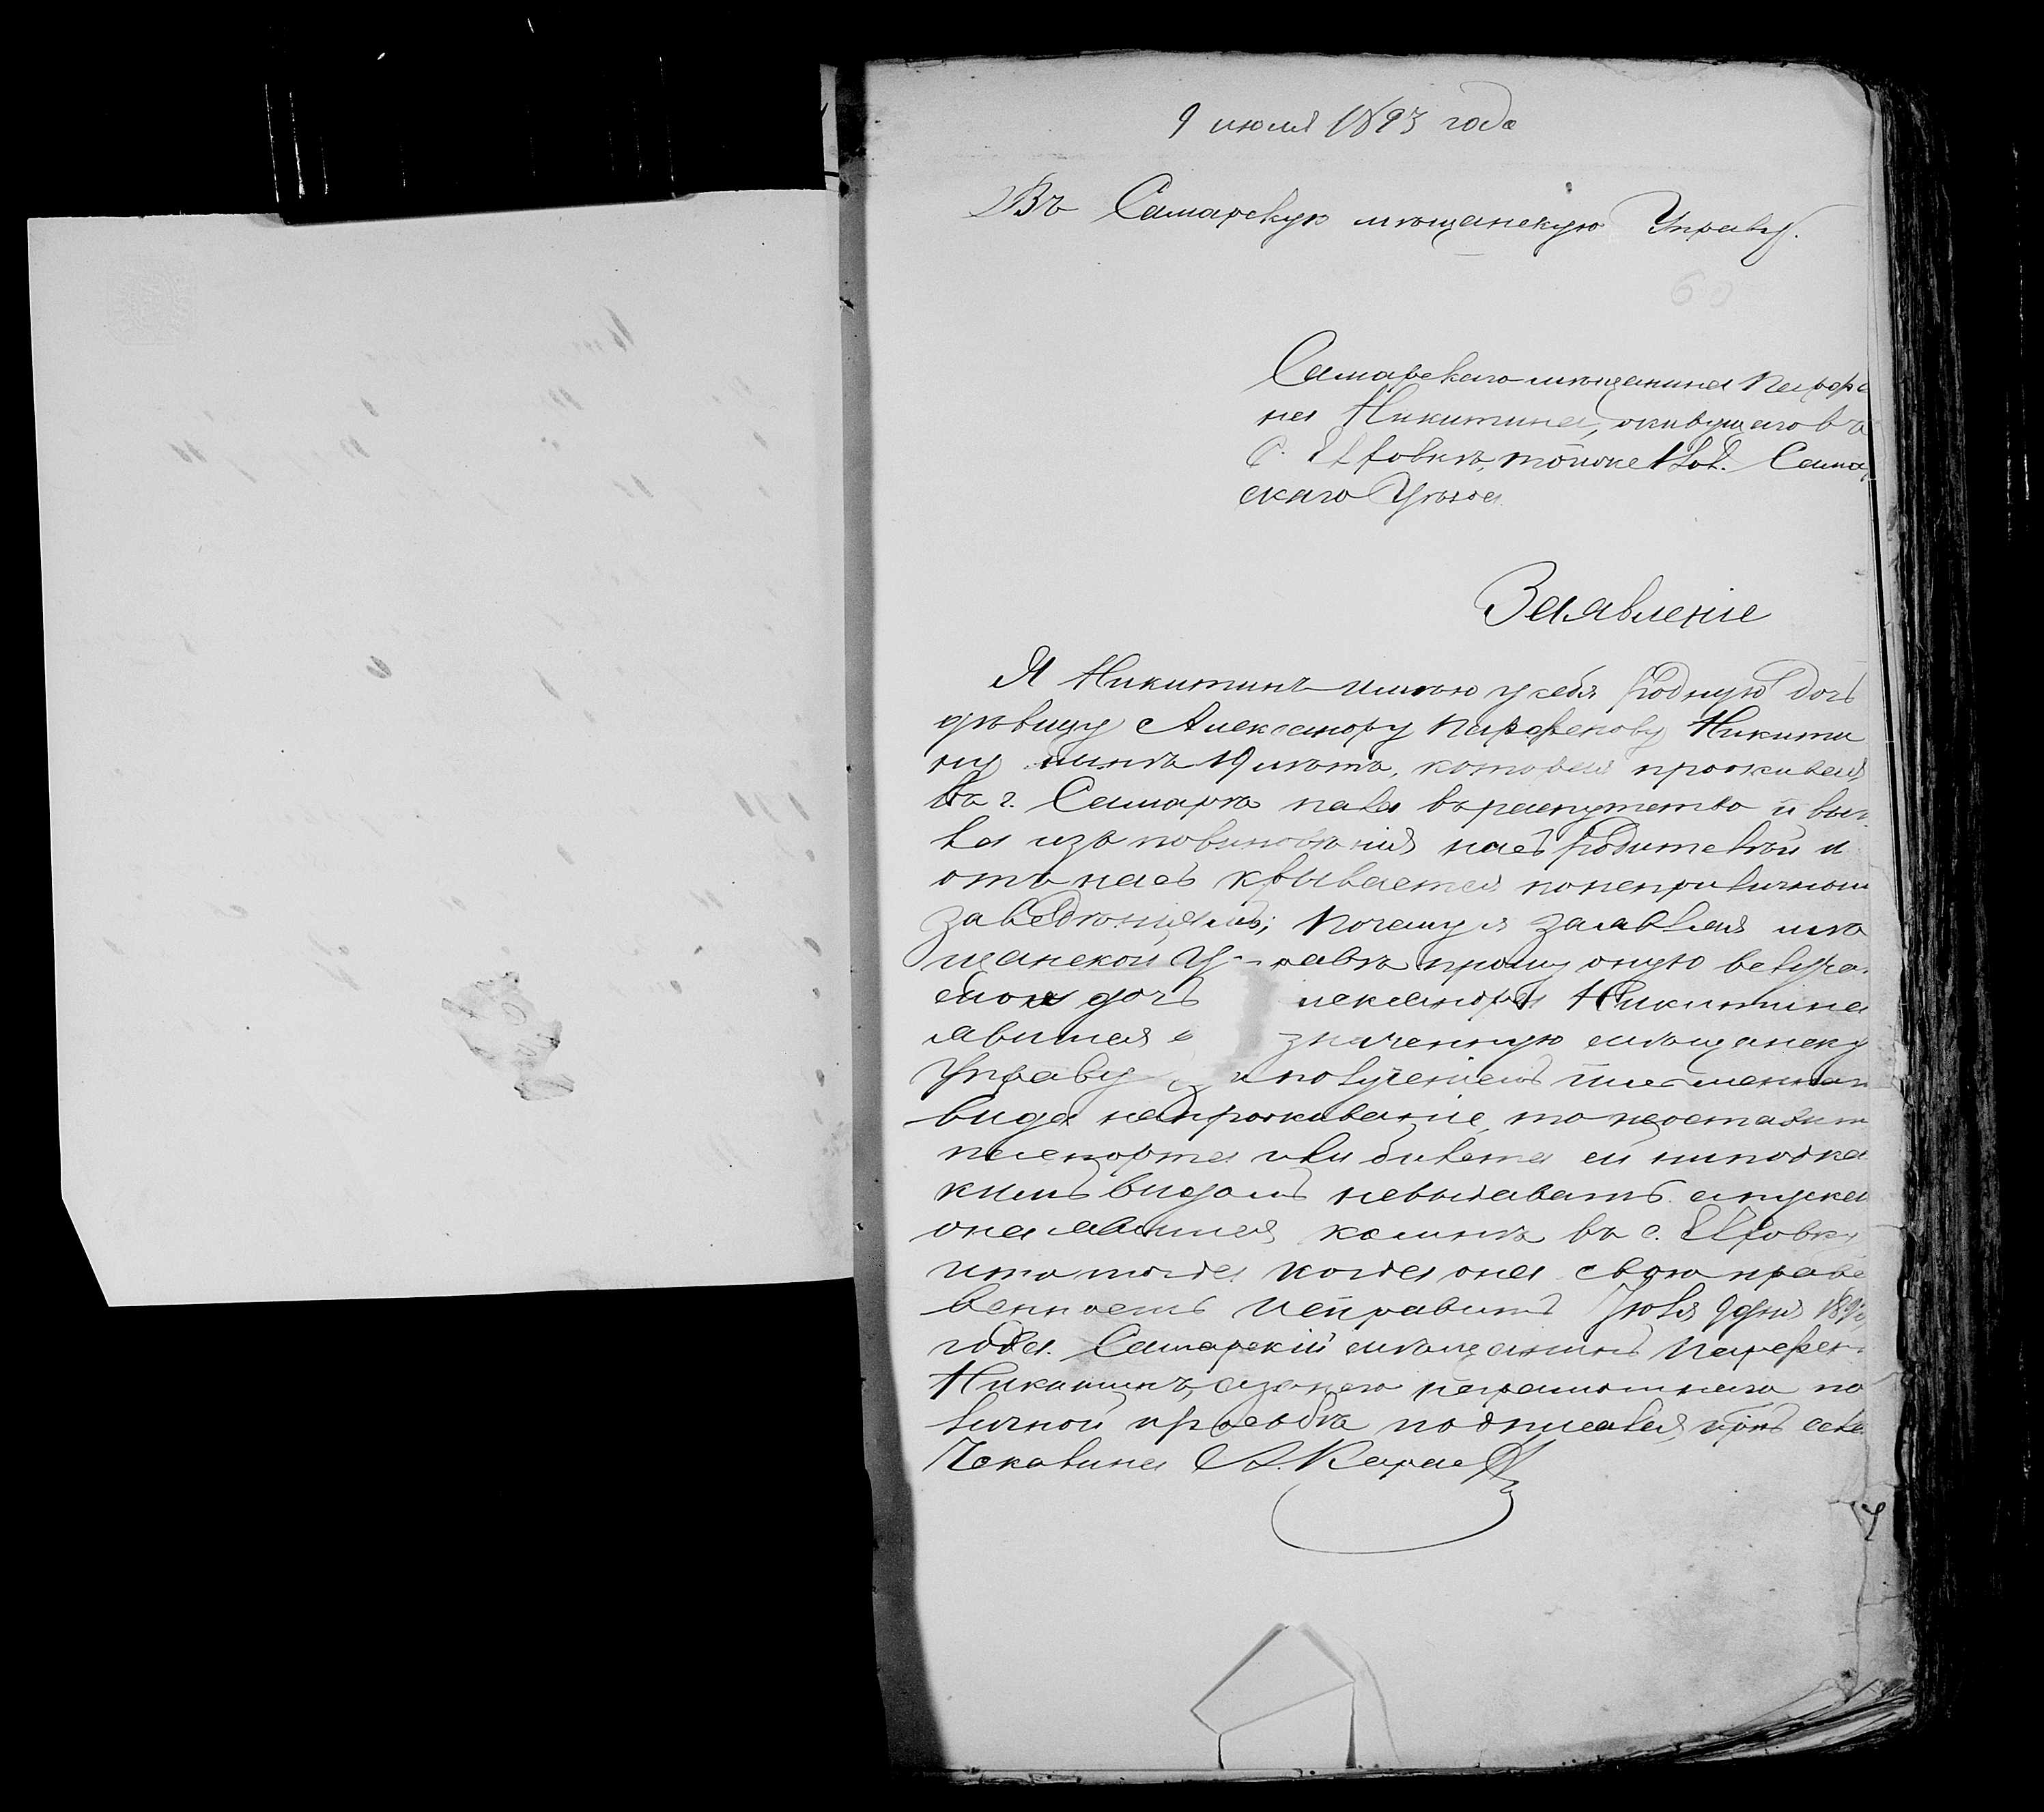 9 июля 1893 года
Въ Самарскую мѣщанскую Управу.
Самарскаго мѣщанина Парфе
на Никитина, живущаго въ
с. Елховкѣ, тойже вол. Самар
скаго Уѣзда
Заявленіе
Я Никитинъ имѣю у себя родную дочь
дѣвицу Александру Парфенову Никити
ну 19 лѣтъ, которая проживая
въ г. Самарѣ пала въ распутство и выш
ла изъ повиновѣнія насъ родителей и
отъ насъ крывается понеприличным
заведѣніямъ; Почему я заявляя мѣ
щанской Управѣ прошу оную
моя дочь лександра Никитина
явится значенную мѣщанску
Управу заполученіемъ писменнаго
вида напроживаніе, то
паспорта или билета ей ниподка
кимъ видомъ невыдавать а пускай
она явится комнѣ въ с. Елховку
ито тогда когда она свою нрав
венность исправитъ Іюля 9 дня 189
года. Самарскій мѣщанинъ Парфен
Никитинъ, азанего неграмотнаго по
личной просьбѣ подписался
А. Карае